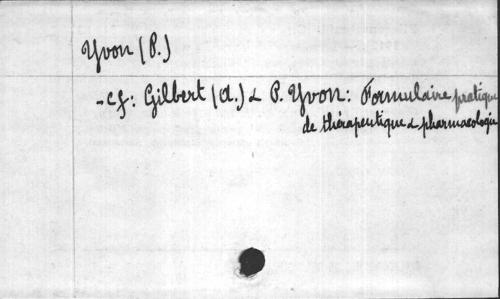 Yvon (P.)
- cf: Gilbert (A.) & P. Yvon: Formulaire pratique
de thérapeutique & pharmacologie